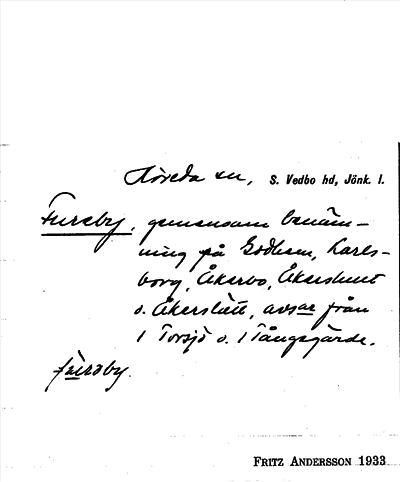 Höreda sn, S. Vedbo hd, Jönk. l.
Fureby, gemensam benäm-
ning på Godhem, Karls-
borg, Åkerbo, Åkerslunt
o. Åkerslätt, avs. från
1 Torsjö o. 1 Tångsgärde.
FRITZ ANDERSSON 1933